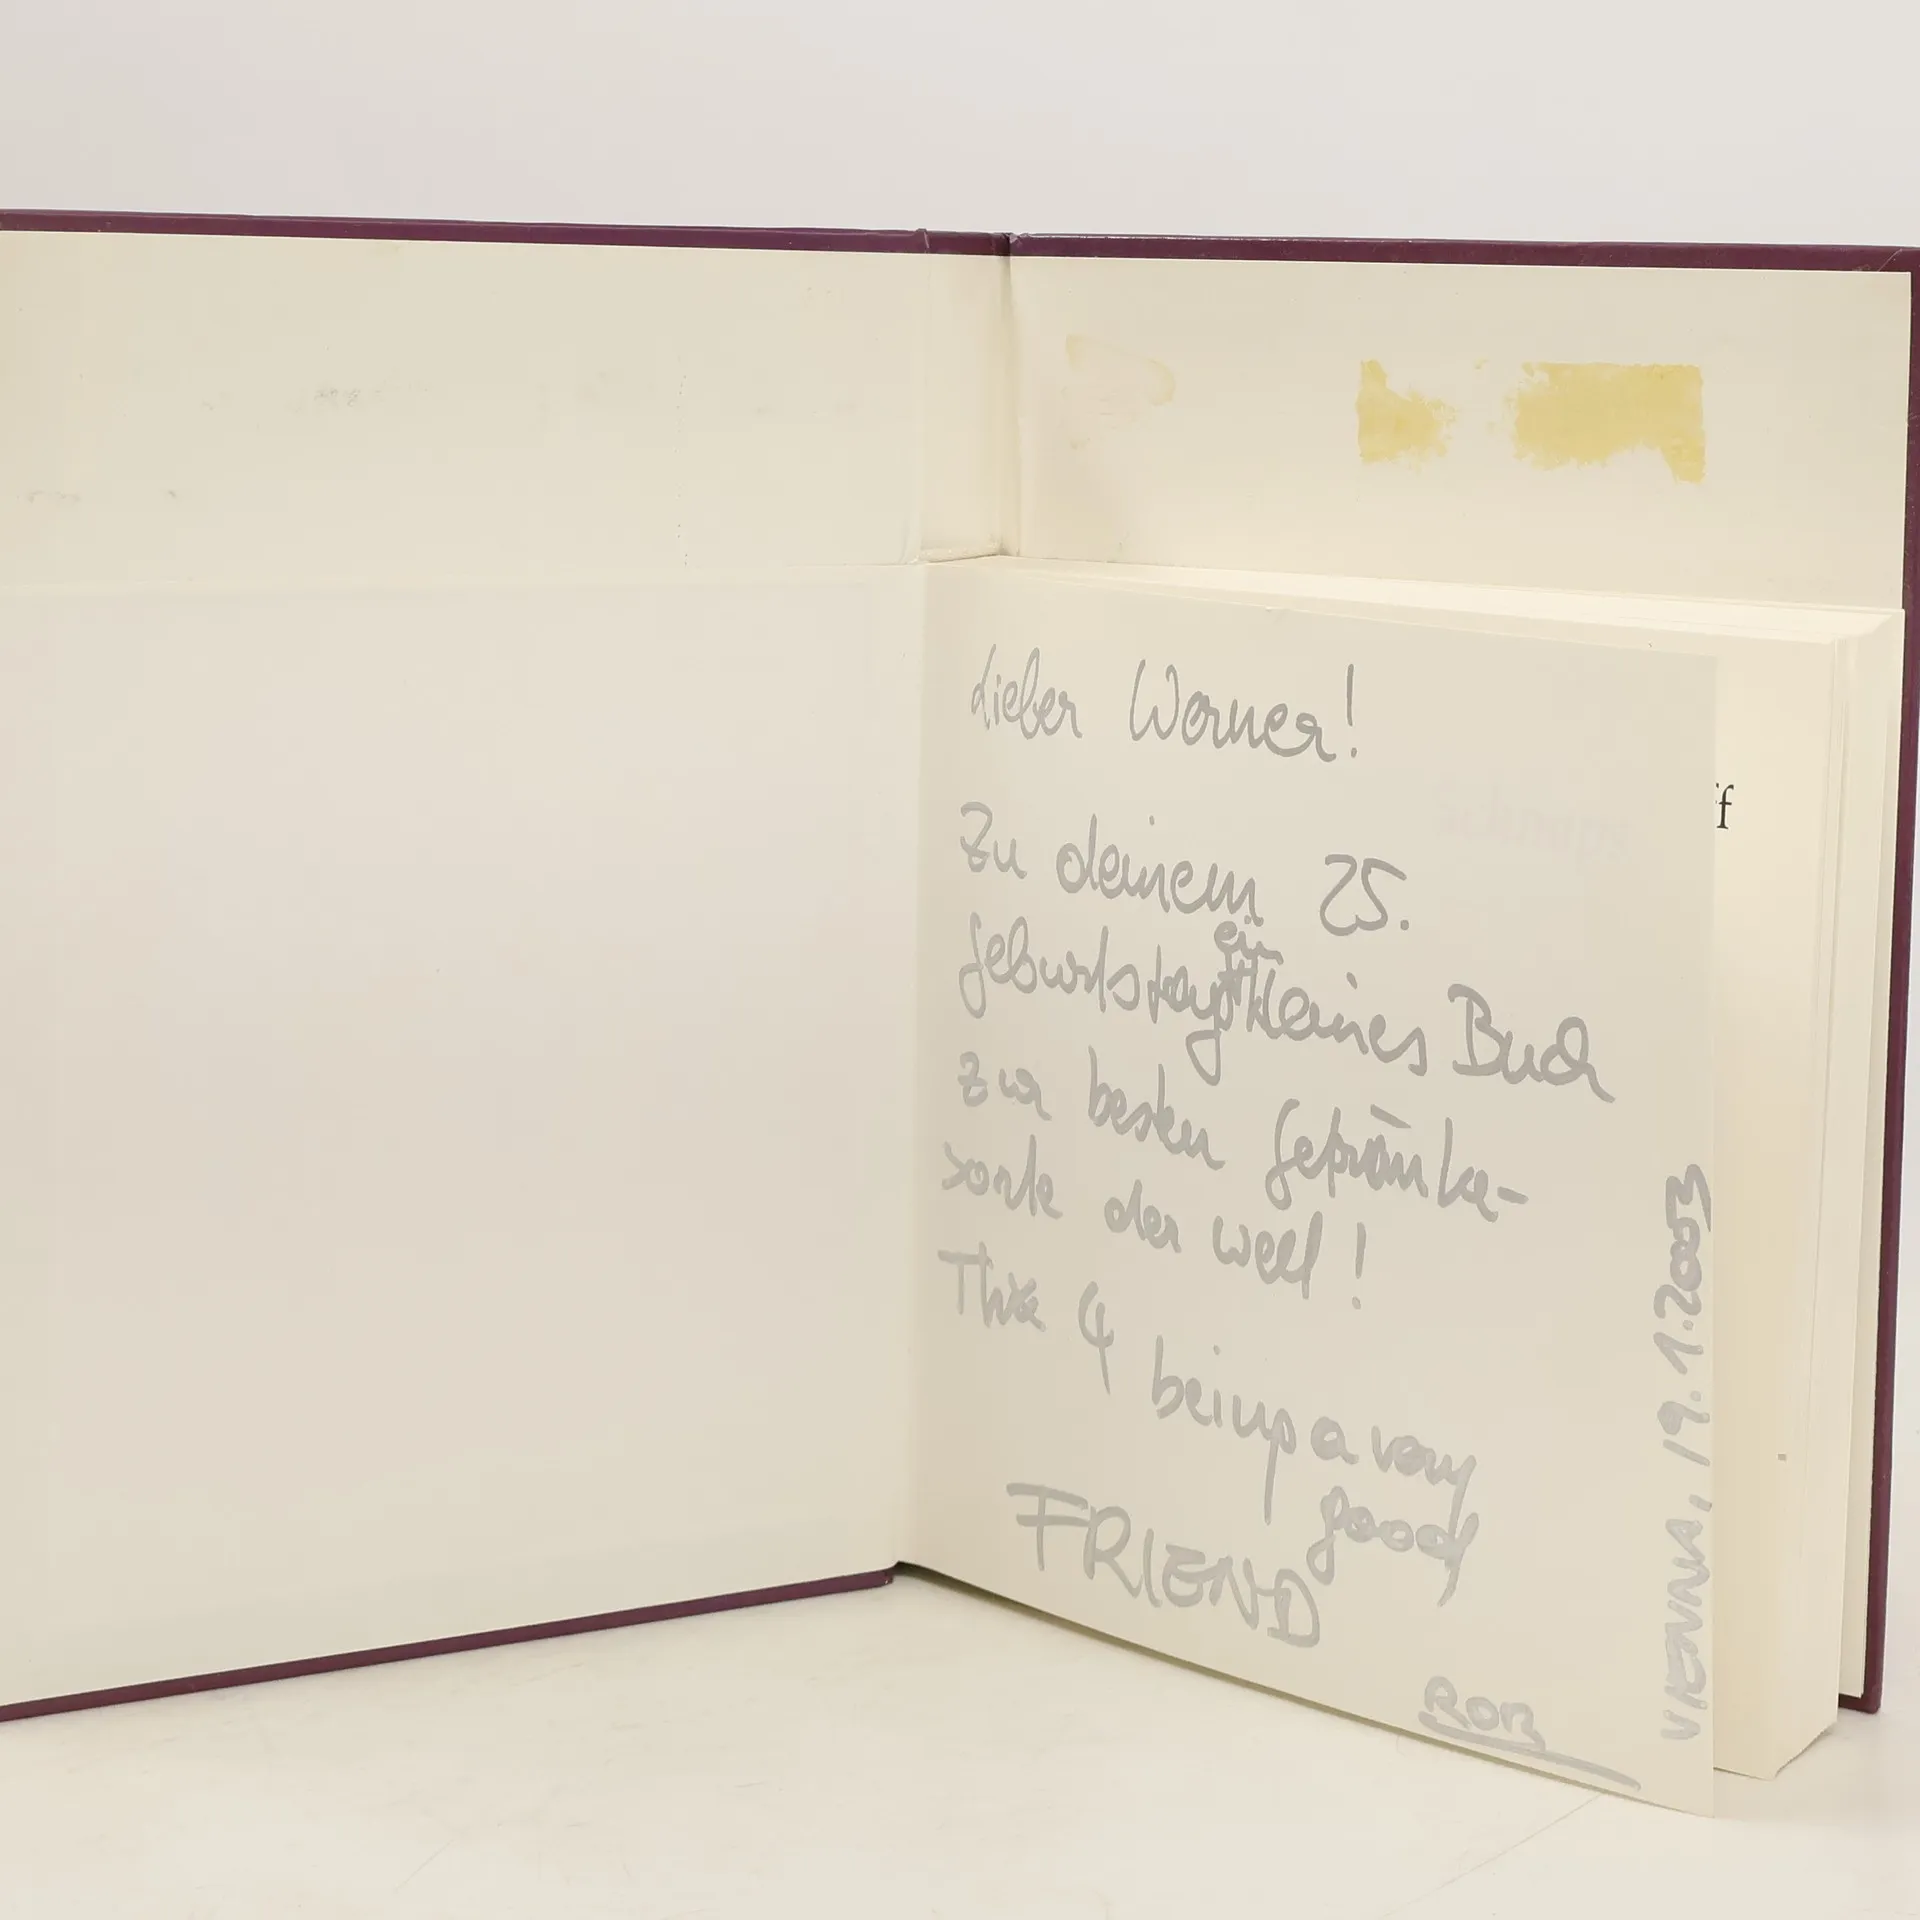 Lieber Werner!
Zu deinem 25.
Geburtstag ein kleines Buch
zur besten Getränke-
sorte der Welt!
Thx 4 being a very
good
FRIEND
Rob
VIENNA, 19.1.2003
ff